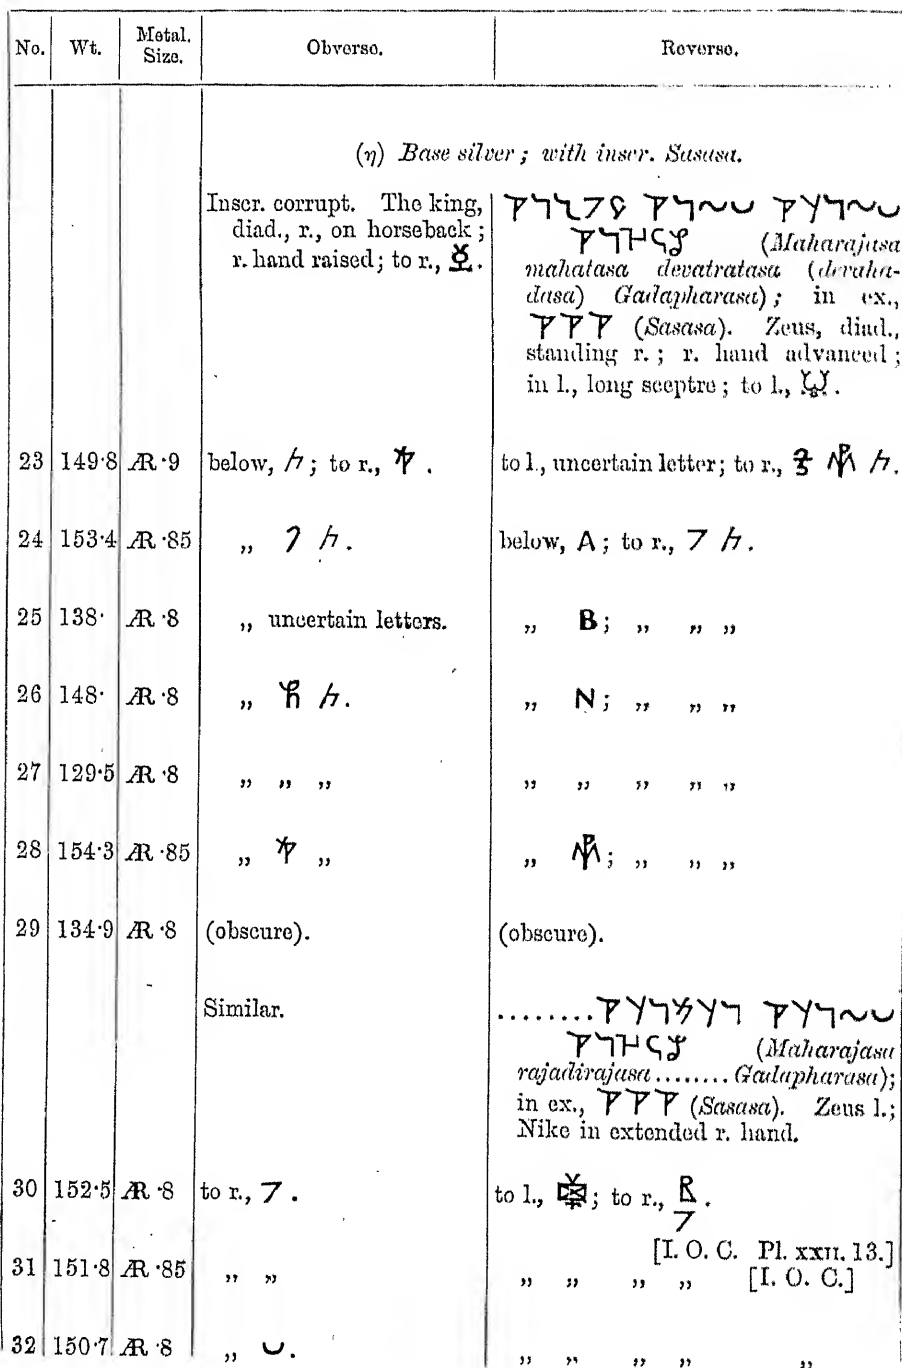 No. Wt. Metal. Size. Obverse. Reverse.
(η) Base silver; with inscr. Sasasa.
Inscr. corrupt. The king,
diad., r., on horseback;
r. hand raised; to r.,
(Maharajasa
mahatasa devatratasa (devaha-
dasa) Gadapharasa); in ex.,
(Sasasa). Zeus, diad.,
standing r.; r. hand advanced;
in l., long sceptre; to l.,
23 149·8 Æ ·9 below, ; to r., . to l., uncertain letter; to r.,
24 153·4 Æ ·85 ,, . below, A; to r., .
25 138· Æ ·8 ,, uncertain letters. ,, B; ,, ,, ,,
26 148· Æ ·8 ,, . ,, N; ,, ,, ,,
27 129·5 Æ ·8 ,, ,, ,, ,, ,, ,, ,, ,,
28 154·3 Æ ·85 ,, ,, ,, ; ,, ,, ,,
29 134·9 Æ ·8 (obscure). (obscure).
Similar.
........
(Maharajasa
rajadirajasa ........ Gadapharasa);
in ex., (Sasasa). Zeus l.;
Nike in extended r. hand.
30 152·5 Æ ·8 to r., . to l., ; to r., .
[I. O. C. Pl. XXII. 13.]
31 151·8 Æ ·85 ,, ,, ,, ,, ,, ,, [I. O. C.]
32 150·7 Æ ·8 ,, . ,, ,, ,, ,, ,,